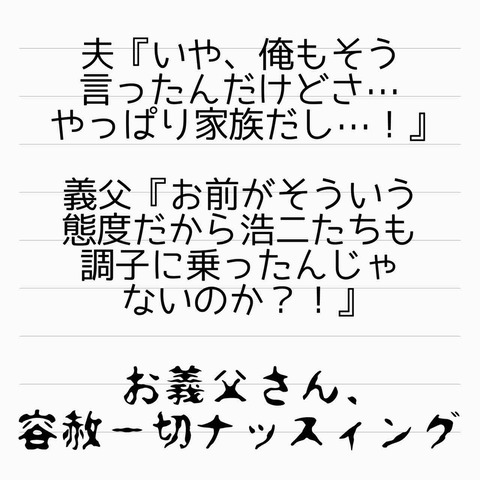 夫『いや、俺もそう
言ったんだけどさ…
やっぱり家族だし…！』
義父『お前がそういう
態度だから浩二たちも
調子に乗ったんじゃ
ないのか？！』
お義父さん、
容赦一切ナッスィング